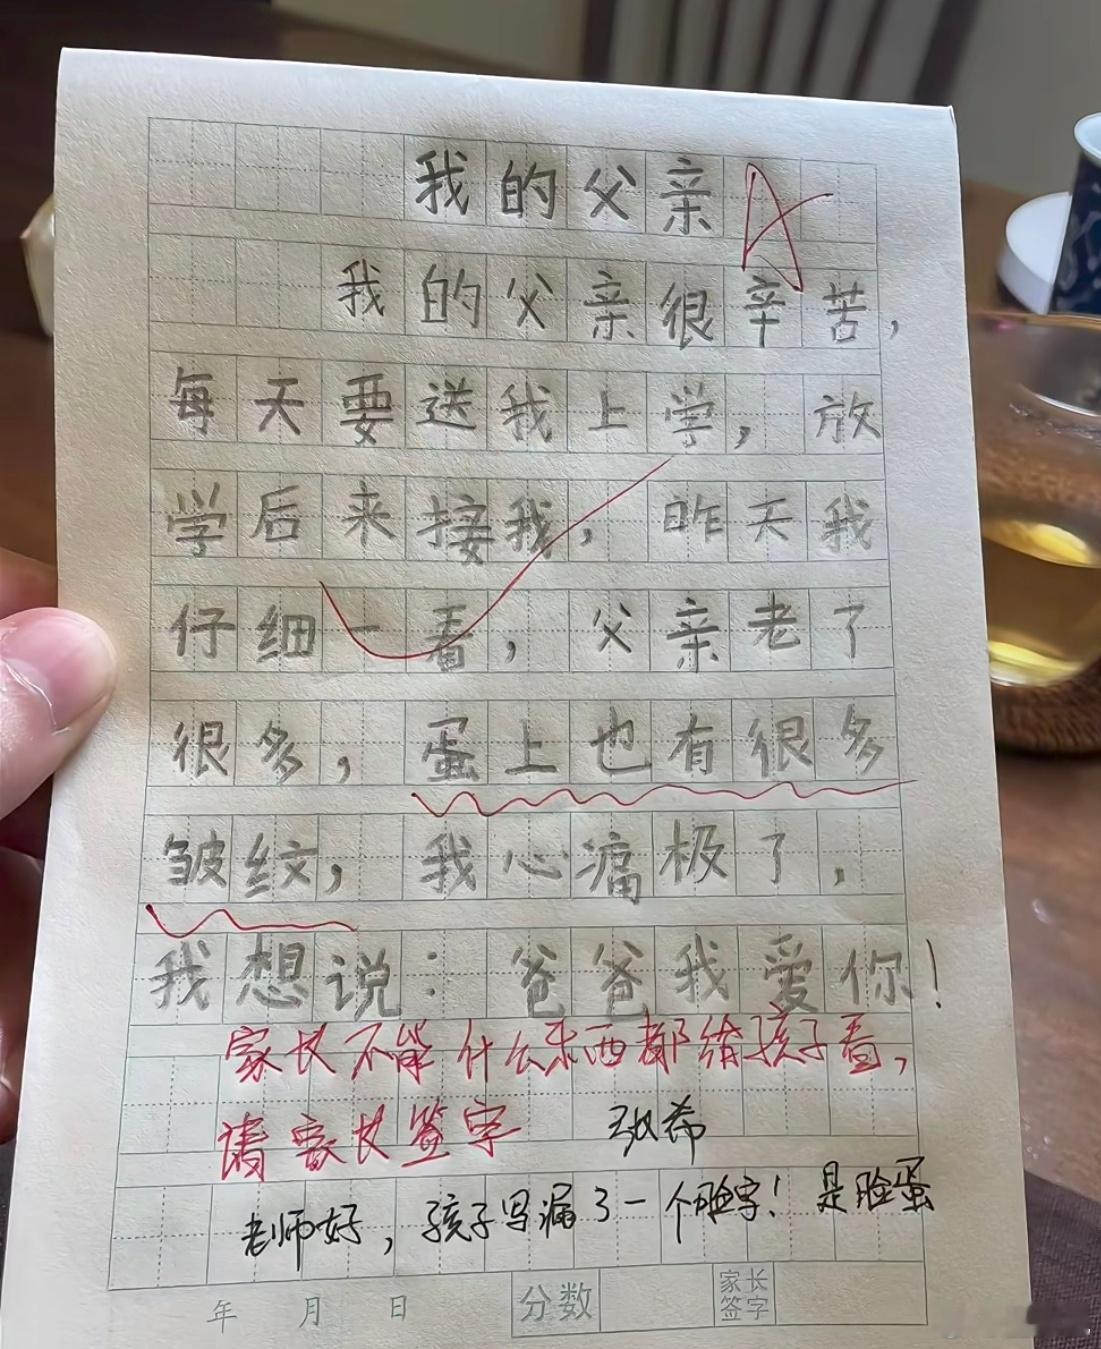 我的父亲 A
我的父亲很辛苦，
每天要送我上学，放
学后来接我，昨天我
仔细一看，父亲老了
很多，蛋上也有很多
皱纹，我心痛极了，
我想说：爸爸我爱你！
家长不能什么东西都给孩子看，
请家长签字
老师好，孩子写漏了一个脸字！是脸蛋
年 月 日 分数 家长签字